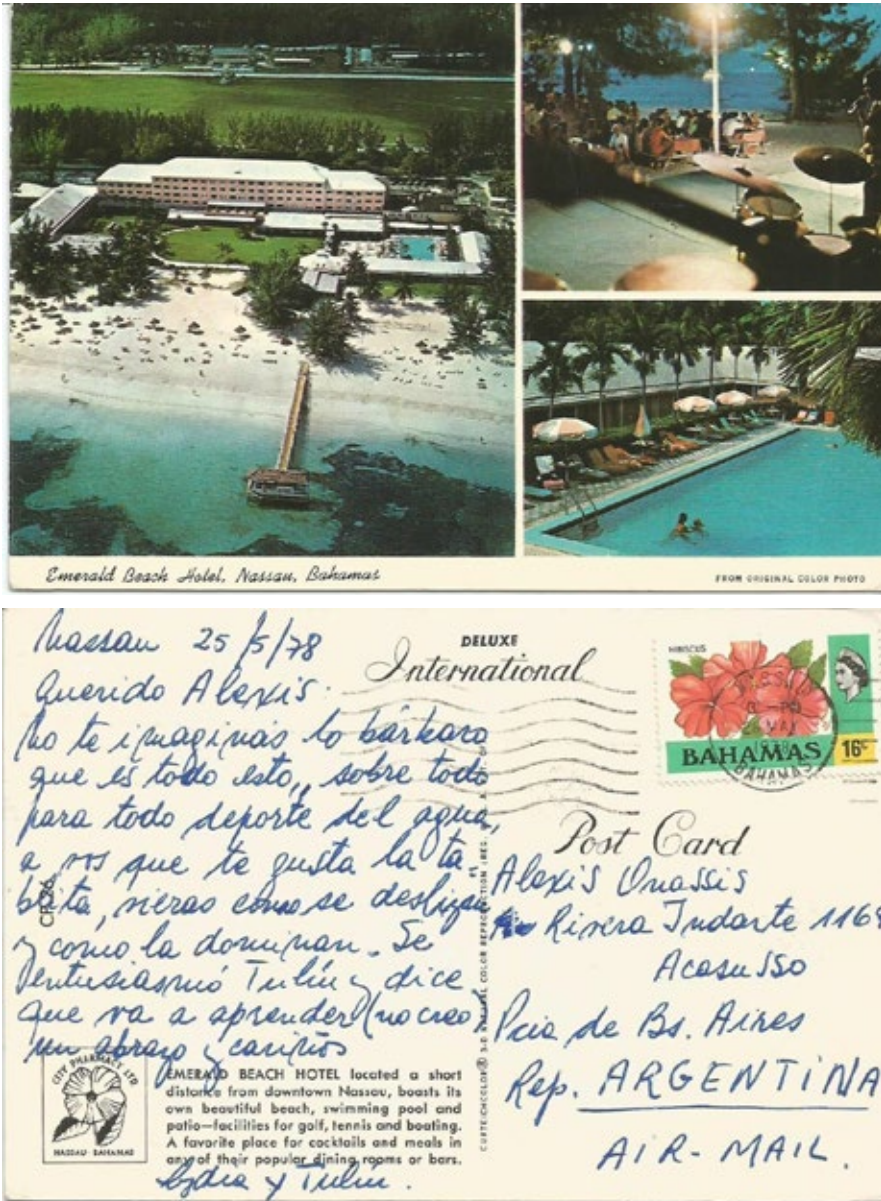 Emerald Beach Hotel, Nassau, Bahamas
FROM ORIGINAL COLOR PHOTO
Nassau 25/5/78
Querido Alexis.
No te imaginás lo bárbaro
que es todo esto, sobre todo
para todo deporte del agua,
a vos que te gusta la ta-
blita, vieras como se deslizan
y como la dominan. Se
entusiasmó Tulín y dice
que va a aprender (no creo)
un abrazo y cariños
Lydia y Tulín.
CP326
CITY PHARMACY LTD
NASSAU BAHAMAS
EMERALD BEACH HOTEL located a short
distance from downtown Nassau, boasts its
own beautiful beach, swimming pool and
patio—facilities for golf, tennis and boating.
A favorite place for cocktails and meals in
any of their popular dining rooms or bars.
DELUXE
International
Post Card
HIBISCUS
BAHAMAS
16c
BAHAMAS
Alexis Onassis
Rivera Indarte 1168
Acasusso
Pcia de Bs. Aires
Rep. ARGENTINA
AIR-MAIL.